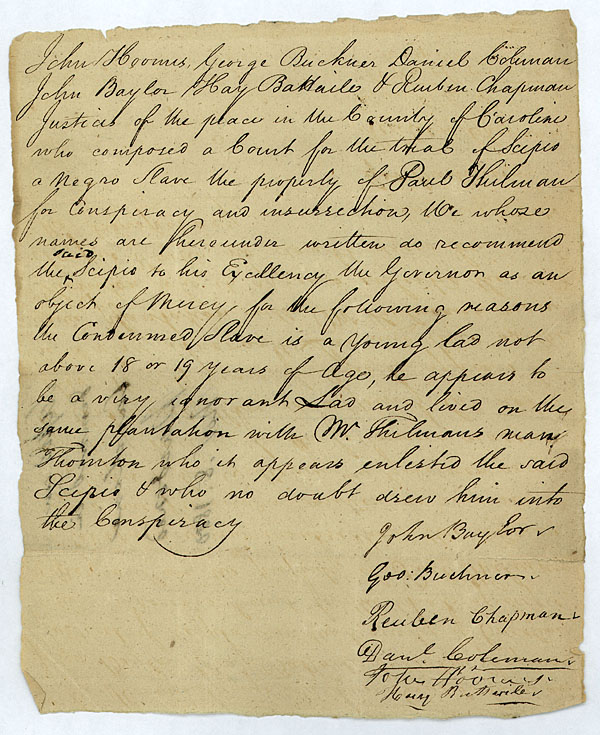 John Hoomes, George Buckner Daniel Coleman
John Baylor, Hay Battaile & Reuben Chapman
Justices of the peace in the County of Caroline
who composed a Court for the trial of Scipio
a Negro Slave the property of Paul Thilman
for Conspiracy and insurrection, We whose
names are thereunder written do recommend
the said Scipio to his Excellency the Governor as an
object of Mercy, for the following reasons
the Condemned Slave is a young lad not
above 18 or 19 years of Age, he appears to
be a very ignorant Lad and lived on the
same plantation with Mr. Thilmans man
Thornton who it appears enlisted the said
Scipio & who no doubt drew him into
the Conspiracy
John Baylor
Geo: Buckner
Reuben Chapman
Danl. Coleman
John Hoomes
Hay Battaile